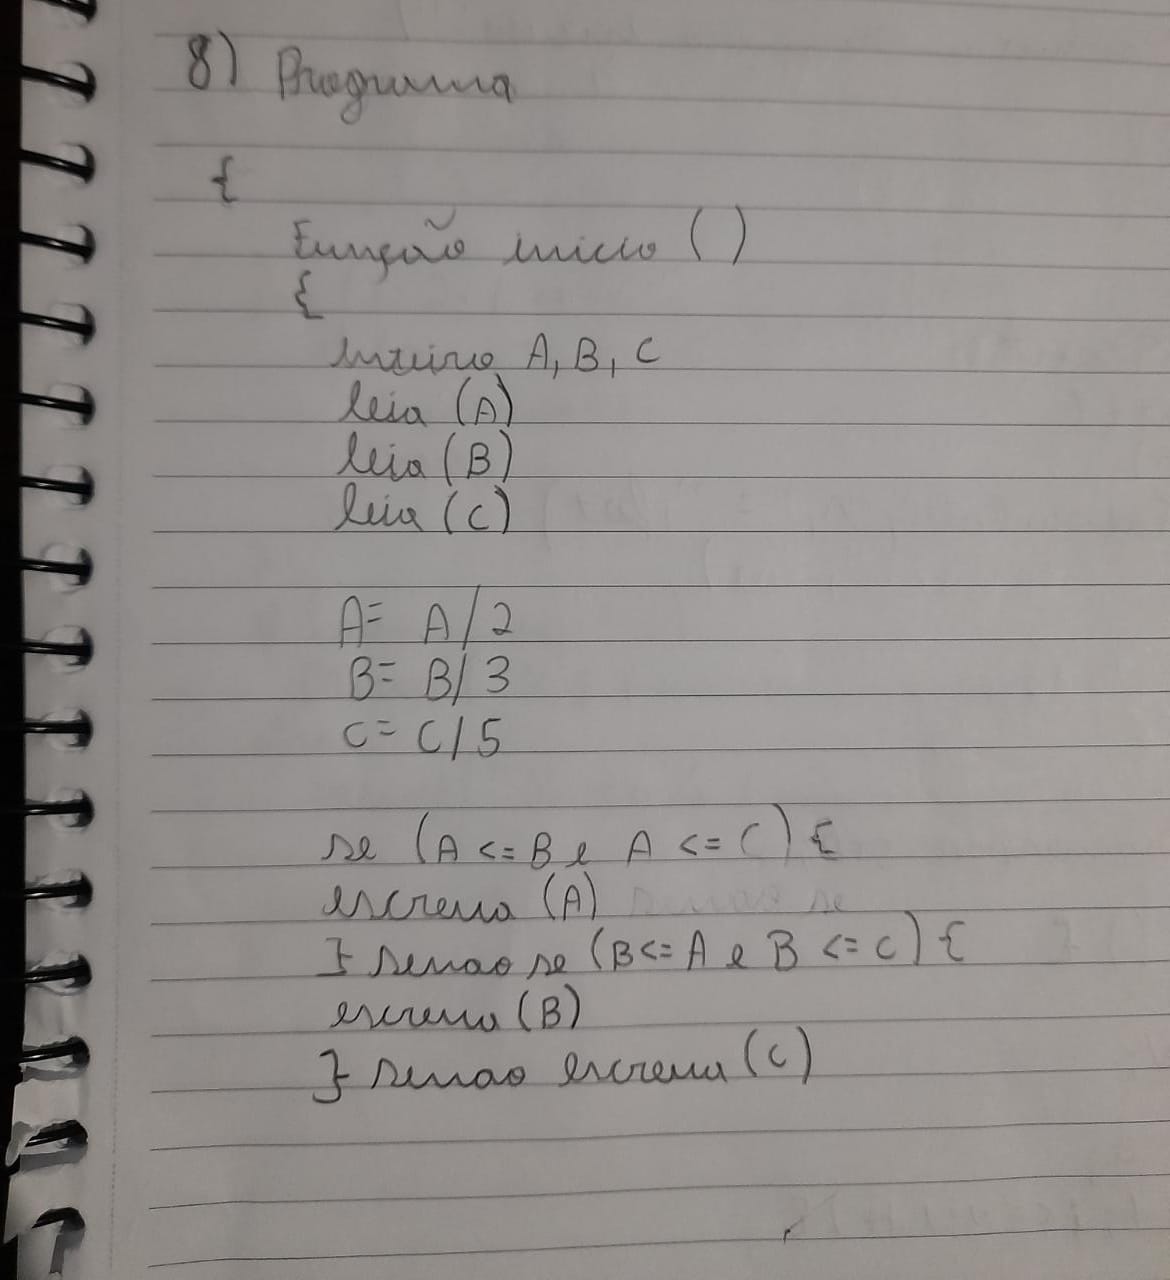 8) Programa
{
Função inicio ()
{
inteiro A, B, C
leia (A)
leia (B)
leia (C)
A= A/2
B= B/3
C= C/5
se (A <= B e A <= C) {
escreva (A)
} senao se (B<= A e B <= C) {
escreva (B)
} senao escreva (C)